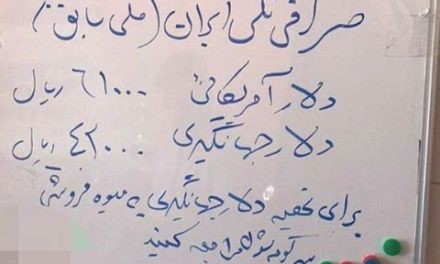 صرافی ایران (ملی سابق)
دلار آمریکایی ۶۱۰۰۰ ریال
دلار جهانگیری ۴۲۰۰۰ ریال
برای تهیه دلار جهانگیری به میوه فروشی
سر کوچه مراجعه کنید